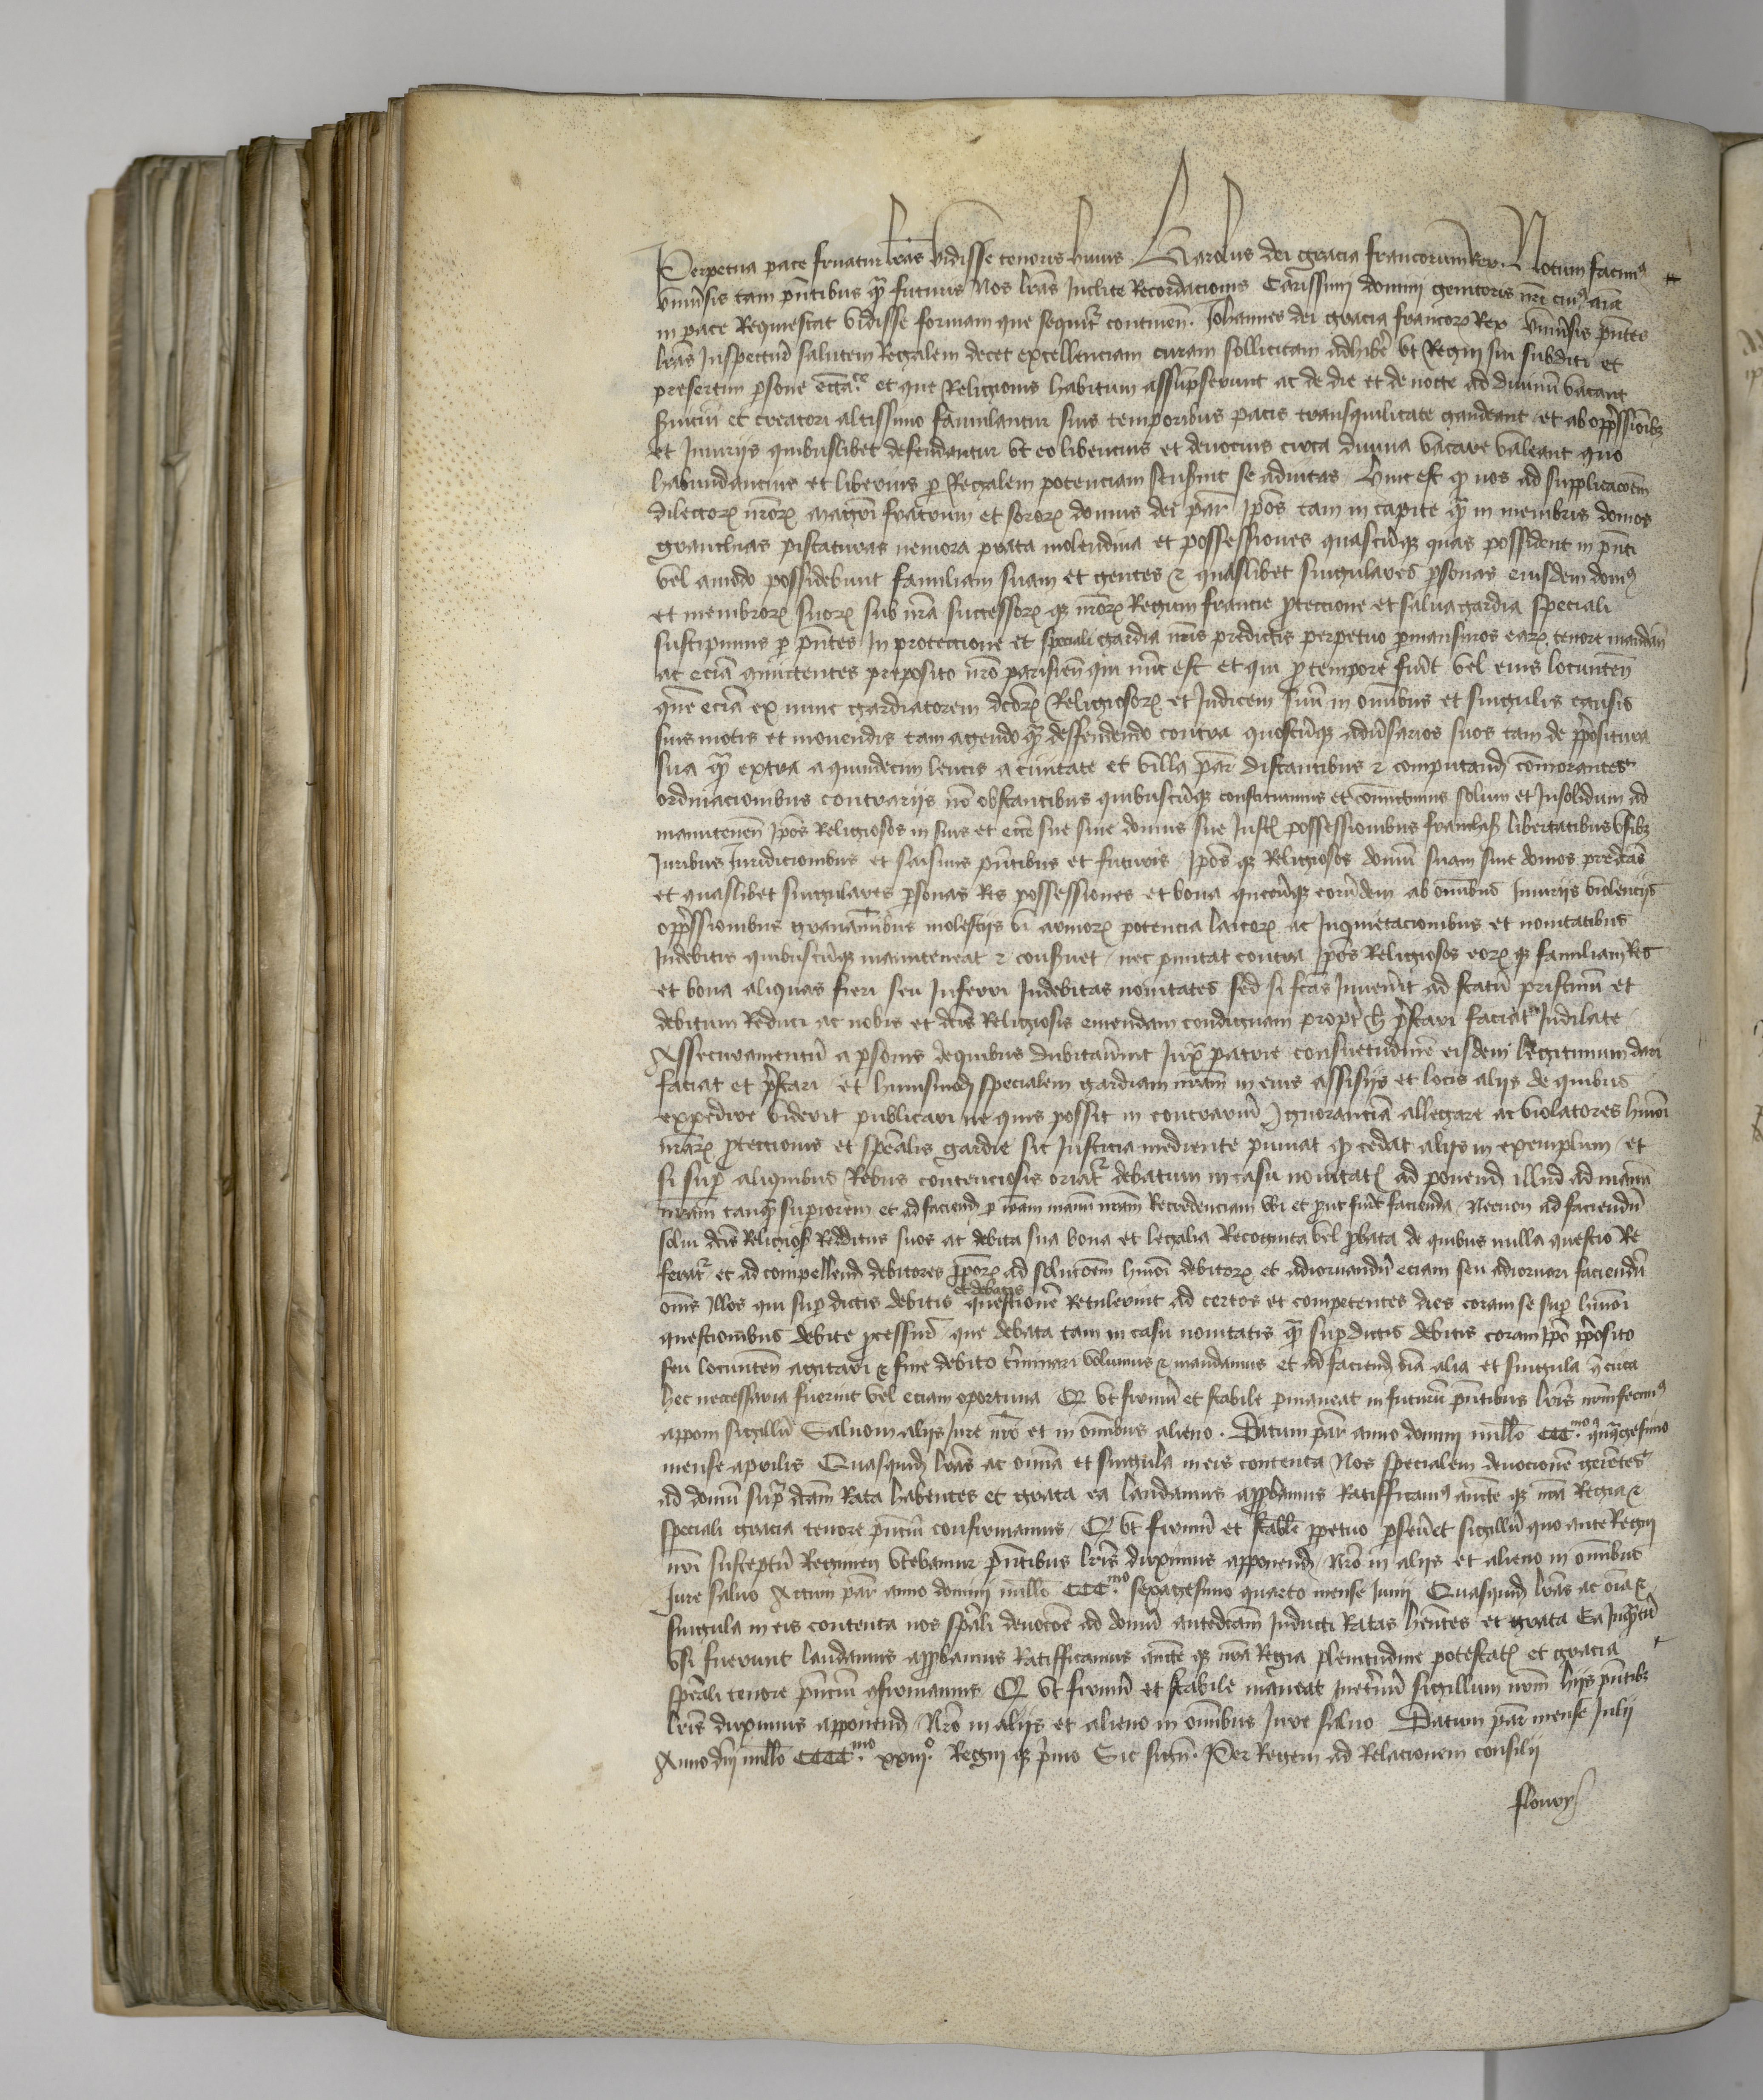 Perpetua pace fruatur lras vidisse tenoris huius. Karolus dei gracia francorum Rex. Notum facimꝯ
vniuersis tam pntibus qͣ futuris Nos lras Inclite Recordacionis Carissimi domini genitoris nri cuiꝯ aia
in pace Requiescat vidisse formam que sequitr continen. Johannes dei gracia francorꝝ Rex vniuersis pntes
lras Inspectur salutem Regalem decet excellenciam curam sollicitam adhibe vt Regni sui subditi et
presertim psone eccͣce et que Religionis habitum assupserunt ac de die et de nocte ad diuinu vacant
seruiciu et creatori altissimo famulantur suis temporibus pacis transquilitate gaudeant et ab oppssioibꝫ
et Iniuriis quibuslibet defendantur vt eo libencius et deuocius circa diuina vacare valeant quo
habundancius et liberius p Regalem potenciam senserint se adiutas Hinc est qͥ nos ad supplicacoem
dilectorꝝ nrorꝝ magri fratrum et sororꝝ domus dei par Ipos tam in capite qͣ in membris domos
granchias piscaturas nemora prata molendina et possessiones quascuqꝫ quas possident in pnti
vel amodo possidebunt familiam suam et gentes ⁊ quaslibet singulares psonas eiusdem domꝯ
et membrorꝝ suorꝝ sub nra successorꝝ qꝫ nrorꝝ Regum francie pteccione et saluagardia speciali
suscipimus p pntes In proteccione et speciali gardia nris predictis perpetuo pmansuros earꝝ tenore mandan
ac ecia comittentes preposito nro parisien qui nuc est et qui p tempore fuit vel eius locunten
que ecia ex nunc gardiatorem dcorꝝ Religiosorꝝ et Iudicem suu in omibus et singulis causis
suis motis et mouendis tam agendo qͣ deffendendo contra quoscuqꝫ aduersarios suos tam de ppositura
sua qͣ extra a quindecim leucis a ciuitate et villa par distantibus ⁊ computand comorantes
ordinacionibus contrariis no obstantibus quibuscuqꝫ constituimus et comictimus solum et Insolidum ad
manutenen Ipos Religiosos in suis et ecce sue siue domus sue Iustꝭ possessionibus franchisꝭ libertatibus vsibꝫ
Iuribus Iuridicionibus et saisinis pntibus et futuris Ipos qꝫ Religiosos domu suam siue domos predcas
et quaslibet singulares psonas Res possessiones et bona quecuqꝫ eorudem ab omibus Iniuriis violenciis
oppssionibus grauaminibus molestiis vi armorꝝ potencia laicorꝝ ac Inquietacionibus et nouitatibus
Indebitis quibuscuqꝫ manuteneat ⁊ conseruet nec pmittat contra Ipos Religiosos eorꝝ qꝫ familiam Res
et bona aliquas fieri seu Inferri Indebitas nouitates sed si fcas Inuenerit ad statu pristinu et
debitum Reduci ac nobis et dcis Religiosis emendam condignam propter h pstari faciat Indilate
Assecuramentu a psonis de quibus dubitauerint Iuxͣ patrie consuetudine eisdem legitimum dari
faciat et pstari et huiusmodi specialem gardiam nram in eius assisiis et locis aliis de quibus
expedire viderit publicari ne quis possit in contrariu Ignorancia allegare ac violatores hmoi
nrarꝝ pteccionis et spealis gardie sic Iusticia mediente puniat qͥ cedat aliis in exemplum et
si sup aliquibus Rebus contenciosis oriatr debatum in casu nouitatꝭ ad ponend illud ad manu
nram tanqͣ supiorem et ad faciend p ipam manu nram Recredenciam vbi et prout fuit facienda Necnon ad faciendu
solui dcis Religiosꝭ Redditus suos ac debita sua bona et legalia Recognita vel pbata de quibus nulla questio Re
feratr et ad compellend debitores ipsorꝝ ad solucoem hmoi debitorꝝ et adiornandu eciam seu adiornari faciendu
oms Illos qui sup dictis debitis et debatis questione Retulerint ad certos et competentes dies coram se sup hmoi
questionibus debite pcessur que debata tam in casu nouitatis qͣ sup dictis debitis coram Ipo pposito
seu locunten agitari ⁊ fine debito tminari volumus ⁊ mandamus et ad faciend oia alia et singula q circa
hec necessaria fuerint vel eciam oportuna Q vt firmu et stabile pmaneat in futuru pntibus lris nrm fecimꝯ
apponi sigillu Saluo in aliis Iure nro et in omibus alieno. Datum par anno domini millo CCC.mo qͥnqͣgesimo
mense aprilis Quasquid lras ac omia et singula in eis contenta Nos specialem deuocione gerentes
ad domu supͣ dcam Rata habentes et grata ea laudamus appbamus Ratifficamꝯ aucte qꝫ nra Regia ⁊
speciali gracia tenore pnciu confirmamus Q vt firmu et stabile ppetuo pseuet sigillu quo ante Regni
nri susceptu Regimen vtebamur pntibus lris duximus apponend Nro in aliis et alieno in omibus
Iure saluo Actum par anno domini millo CCC.mo sexagesimo quarto mense Iunii Quasquid lras ac oia ⁊
singula in eis contenta nos spali deuocoe ad domu antedcam Inducti Ratas hentes et grata Ea Inqͣtu
vsi fuerunt laudamus appbamus Ratifficamus aucte qꝫ nra Regia plenitudine potestatꝭ et gracia
speali tenore pnciu cofirmamus Q vt firmu et stabile maneat Ineternu sigillum nrm hiis pntibꝫ
lris duximus apponend Nro in aliis et alieno in omibus Iure saluo Datum par mense Iulii
Anno dni millo CCCC.mo xxiii.o Regni qꝫ pmo Sic sign. Per Regem ad Relacionem consilii
floury